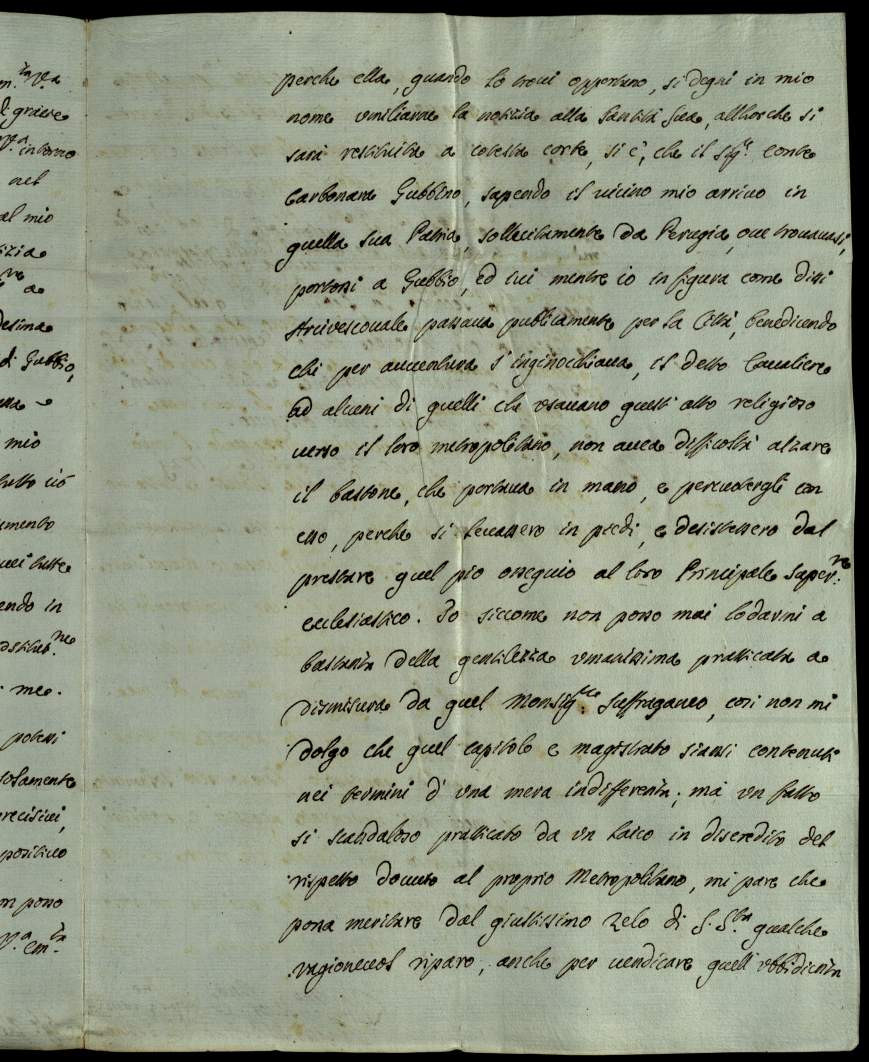 m.ᵗᵃ V.ᵃ
di grave
V.ᵃ intorno
nel
al mio
tizia
a
desima
di Gubbio,
mio
tutto ciò
umento
uei tutte
endo in
ostitut.ⁿᵉ
me.
potevi
solamente
recisivi,
positivo
on posso
V.ᵃ Em.ᶻᵃ
perche ella, quando lo trovi opportuno, si degni in mio
nome umiliarne la notizia alla Santità Sua, allhorche si
sarà restituita a cotesta corte, si è, che il Sig.ʳ Conte
Carbonana Gubbino, sapendo il vicino mio arrivo in
quella sua Patria, sollecitamente da Perugia, ove trovavasi,
portossi a Gubbio, ed ivi mentre io in figura come dissi
Arcivescovale passava publicamente per la Città, benedicendo
chi per avventura s'inginochiava, il detto Cavaliere
ad alcuni di quelli che usavano questi atto religioso
verso il loro metropolitano, non avea difficoltà alzare
il bastone, che portava in mano, e percuotergli con
esso, perche si levassero in piedi, e desistessero dal
prestare quel pio ossequio al loro Principale Super.ʳᵉ
ecclesiastico. Io siccome non posso mai lodarmi a
bastanza della gentilezza umanissima pratticata a
dismisura da quel Monsig.ʳᵉ Suffraganeo, così non mi
dolgo che quel capitolo e magistrato siansi contenuti
nei termini d'una mera indifferenza; mà un fatto
si scandaloso pratticato da un laico in discredito del
rispetto dovuto al proprio Metropolitano, mi pare che
possa meritare dal giustissimo zelo di S. S.ᵗᵃ qualche
ragionevol riparo, anche per vendicare quell'ubbidienza